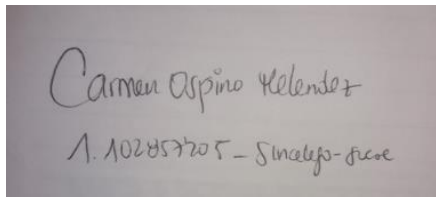 Carmen Ospino Melendez
1.102857205 - Sincelejo - Sucre